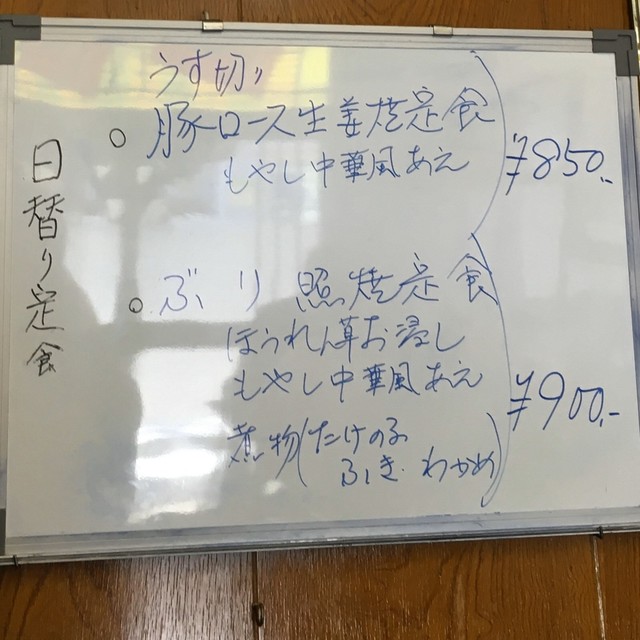 日替り定食
うす切り
○ 豚ロース生姜焼定食
もやし中華風あえ
¥850.-
○ ぶり照焼定食
ほうれん草お浸し
もやし中華風あえ
¥900.-
煮物(たけのこ
ふき・わかめ)